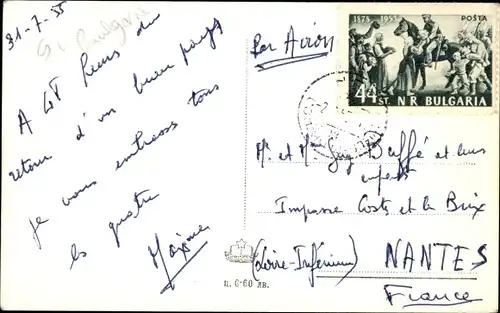 31-7-55
Bulgarie
A 48 heures du
retour d'un beau pays
je vous embrasse tous
les quatre
Maxime
Par Avion
1878 1953 POŠTA
44 ST. N R BULGARIA
Mr et Mme Guy Buffé et leurs
enfants
Impasse Costes et le Brix
(Loire-Inférieure) NANTES
France
ц. 0·60 лв.